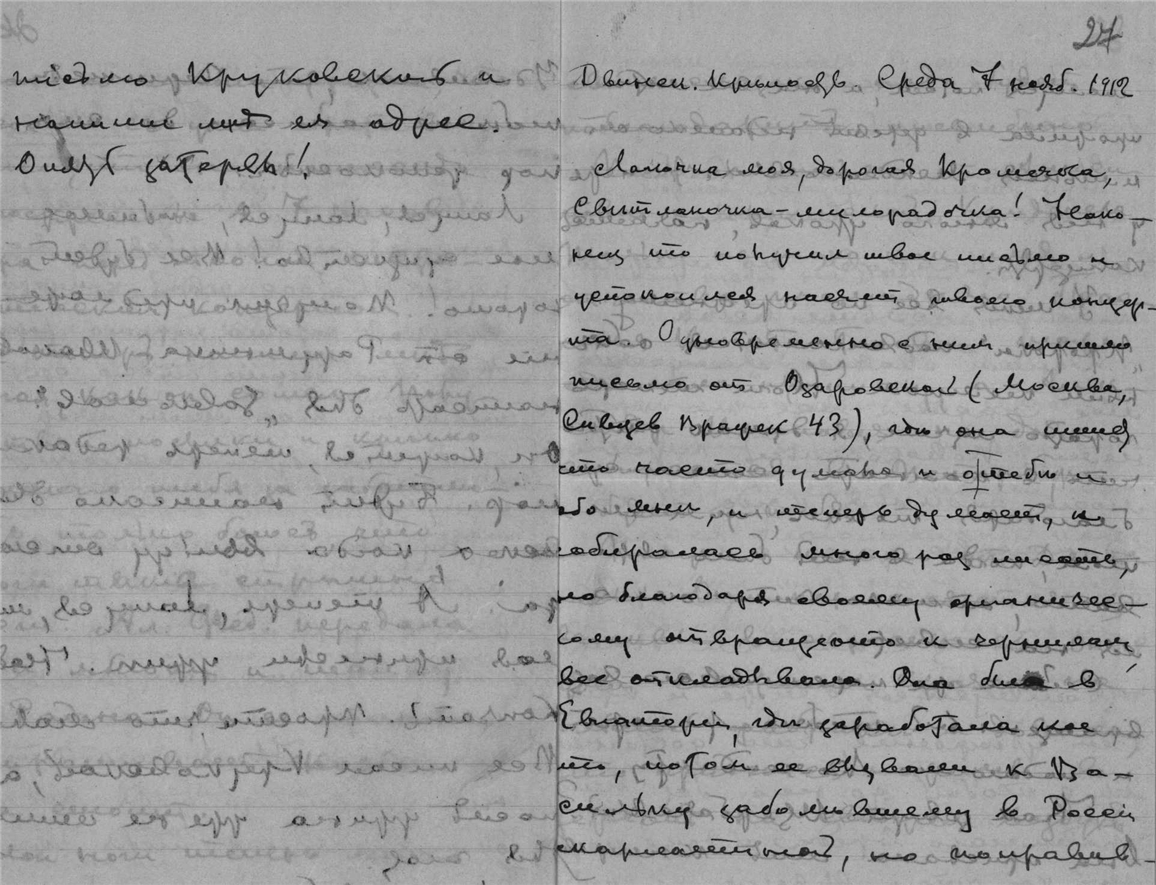 письмо Круковской и
напиши мнѣ ея адрес.
Опять затерял!
27
Двинск. Крылова Среда 7 нояб. 1912
Лапочка моя, дорогая Кромячка,
Свытлапочка-милорадочка! Нако-
нец то получил твое письмо и
успокоился насчет твоего концер-
та Одновременно с ним пришло
письмо от Озаровской (Москва,
Сивцев Вражек 43), гдѣ она пишет
что часто думала и о тебѣ и
обо мнѣ, и теперь думает, и
собиралась много раз писать,
но благодаря своему органичес-
кому отвращению к чернилам
все откладывала. Она была в
Евпаторіи, гдѣ заработала кое
что, потом ее вызвали к Ва-
сильку заболѣвшему в Россіи
скарлатиной, но поправив-